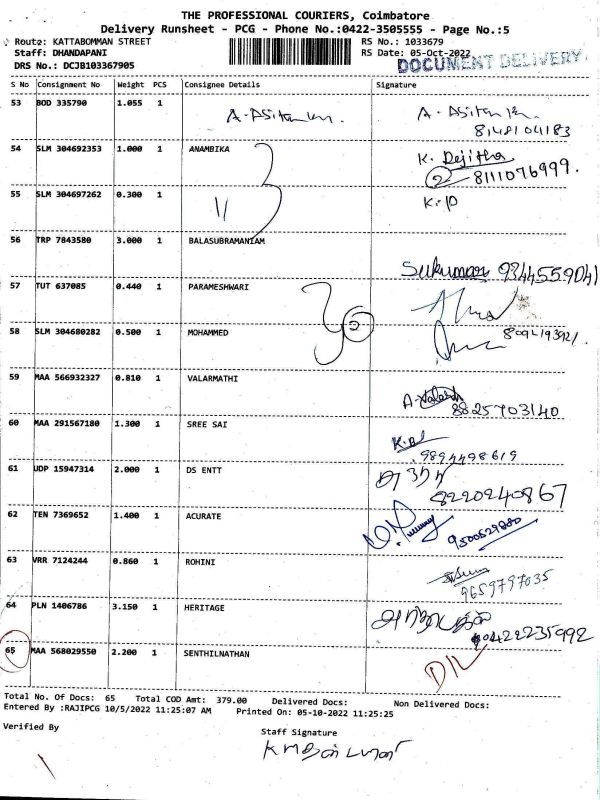 THE PROFESSIONAL COURIERS, Coimbatore
Delivery Runsheet - PCG - Phone No.:0422-3505555 - Page No.:5
Route: KATTABOMMAN STREET RS No.: 1033679
Staff: DHANDAPANI RS Date: 05-Oct-2022
DRS No.: DCJB103367905 DOCUMENT DELIVERY
S No Consignment No Weight PCS Consignee Details Signature
53 BOD 335790 1.055 1 A. Asitan A. Asitan
8148104183
54 SLM 304692353 1.000 1 ANAMBIKA K. Dejitha
2 8111076999.
55 SLM 304697262 0.300 1 11
56 TRP 7843580 3.000 1 BALASUBRAMANIAM
Sukumar 9344559041
57 TUT 637085 0.440 1 PARAMESHWARI
58 SLM 304680282 0.500 1 MOHAMMED 2
59 MAA 566932327 0.810 1 VALARMATHI
8825703140
60 MAA 291567180 1.300 1 SREE SAI
9894498619
61 UDP 15947314 2.000 1 DS ENTT
8220240867
62 TEN 7369652 1.400 1 ACURATE
9500529880
63 VRR 7124244 0.860 1 ROHINI
9659797035
64 PLN 1406786 3.150 1 HERITAGE
0422235992
65 MAA 568029550 2.200 1 SENTHILNATHAN D/L
Total No. Of Docs: 65 Total COD Amt: 379.00 Delivered Docs: Non Delivered Docs:
Entered By :RAJIPCG 10/5/2022 11:25:07 AM Printed On: 05-10-2022 11:25:25
Verified By Staff Signature